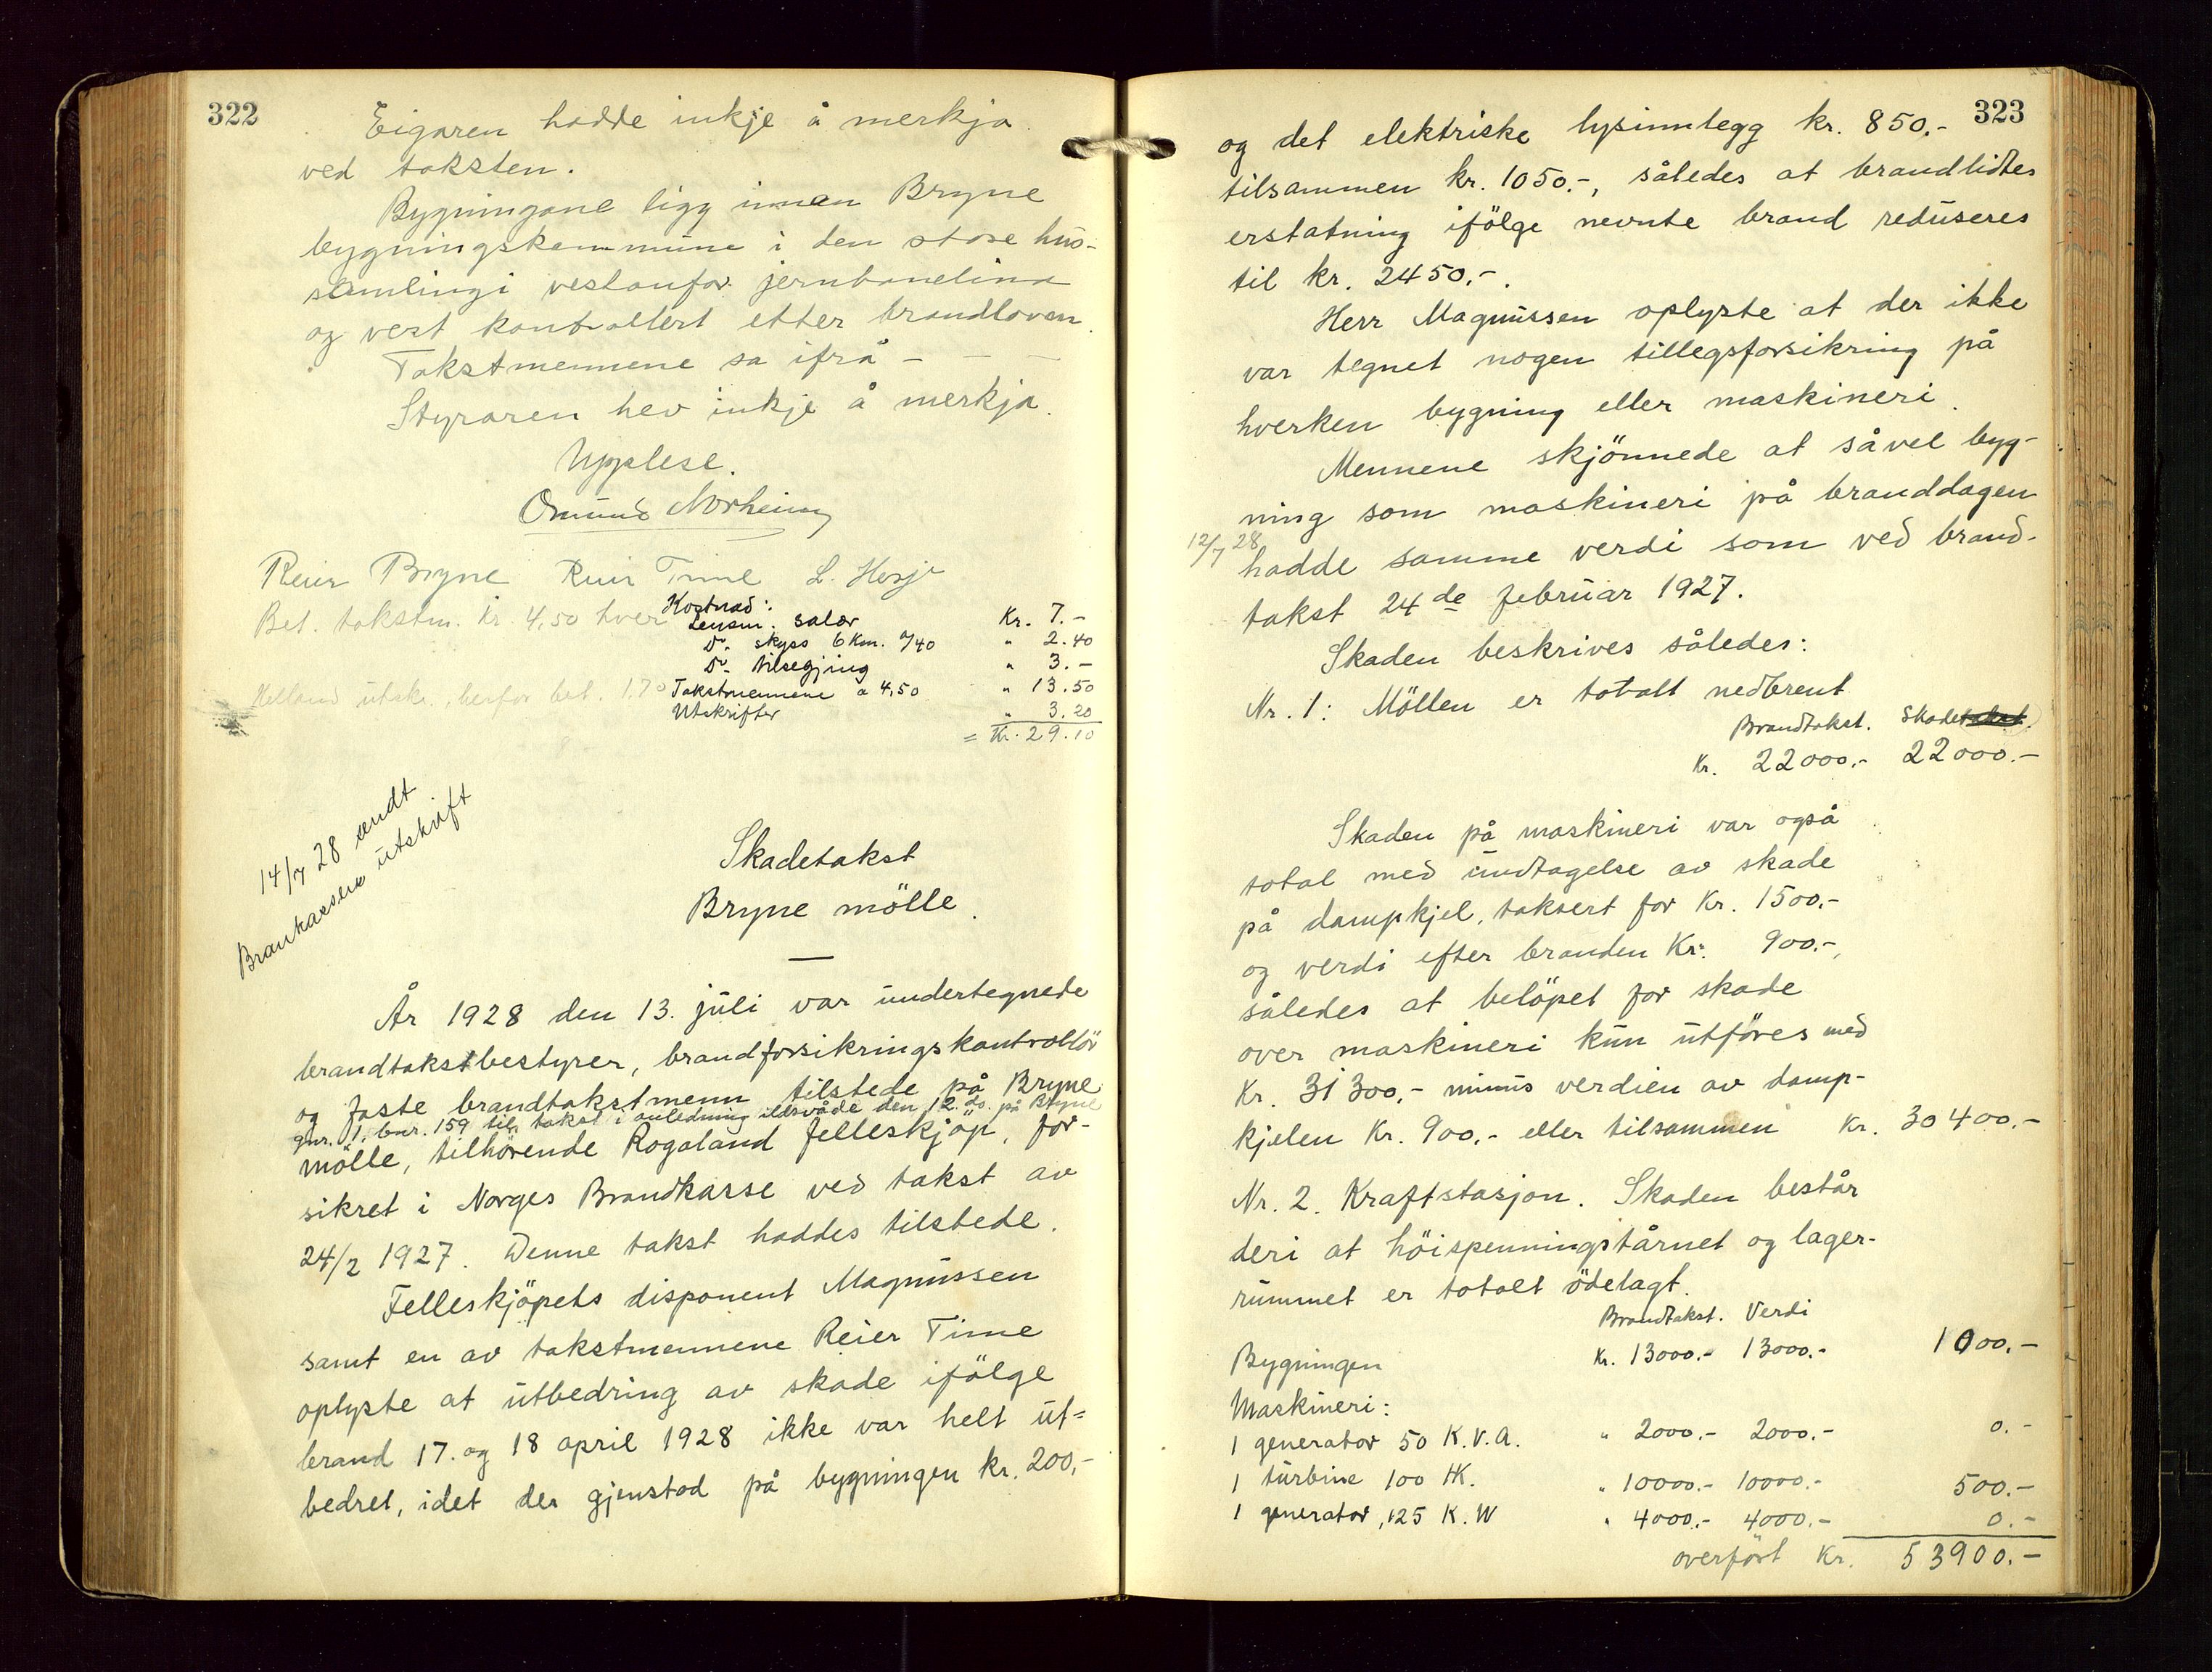 322
Eigaren hadde inkje å merkja
ved taksten.
Bygningane ligg innan Bryne
bygningskommune i den store hus-
samlingi vestanfor jernbanelina
og vert kontrollert etter brandloven.
Takstmennene sa ifrå - - -
Styraren hev inkje å merkja.
Upplese.
Omund Norheim
Reier Bryne Reier Time L. Hesje
Bet. takstm. kr. 4,50 hver
Kostnad:
Lensm. salær Kr. 7.-
Do. skyss 6 Km. a/40 " 2.40
Do- tilsegjing " 3.-
Takstmennene a 4,50 " 13.50
Utskrifter " 3.20
= Kr. 29.10
Helland utsk., herfor bet. 1.70
14/7 28 sendt
Brankassen utskrift
Skadetakst
Bryne mölle.
År 1928 den 13. juli var undertegnede
brandtakstbestyrer, brandforsikringskontrollör
og faste brandtakstmenn tilstede på Bryne
gnr. 1. bnr. 159 til takst i anledning ildsvåde den 12. ds. på Bryne
mölle, tilhörende Rogaland Felleskjöp, for-
sikret i Norges Brandkasse ved takst av
24/2 1927. Denne takst haddes tilstede.
Felleskjöpets disponent Magnussen
samt en av takstmennene Reier Time
oplyste at utbedring av skade ifölge
brand 17. og 18 april 1928 ikke var helt ut=
bedret, idet der gjenstod på bygningen kr. 200,-
323
og det elektriske lysinnlegg kr. 850.-
tilsammen kr. 1050.-, således at brandlidtes
erstatning ifölge nevnte brand reduseres
til kr. 2450.-.
Herr Magnussen oplyste at der ikke
var tegnet nogen tillegsforsikring på
hverken bygning eller maskineri.
Mennene skjönnede at såvel byg-
ning som maskineri på branddagen
12/7 28
hadde samme verdi som ved brand-
takst 24de februar 1927.
Skaden beskrives således:
Nr. 1: Möllen er totalt nedbrent
Brandtakst. Skadetakst.
Kr. 22000.- 22000.-
Skaden på maskineri var også
total med undtagelse av skade
på dampkjel, taksert for Kr. 1500.-
og verdi efter branden Kr. 900.-,
således at belöpet for skade
over maskineri kun utföres med
Kr. 31300,- minus verdien av damp-
kjelen Kr. 900,- eller tilsammen Kr. 30400.-
Nr. 2. Kraftstasjon. Skaden består
deri at höispenningstårnet og lager-
rummet er totalt ödelagt.
Brandtakst. Verdi
Bygningen Kr. 13000.- 13000.- 1000.-
Maskineri:
1 generator 50 K.V.A. " 2000.- 2000.- 0.-
1 turbine 100 HK. " 10000.- 10000.- 500.-
1 generator, 125 K.W " 4000.- 4000.- 0.-
overfört Kr. 53900.-